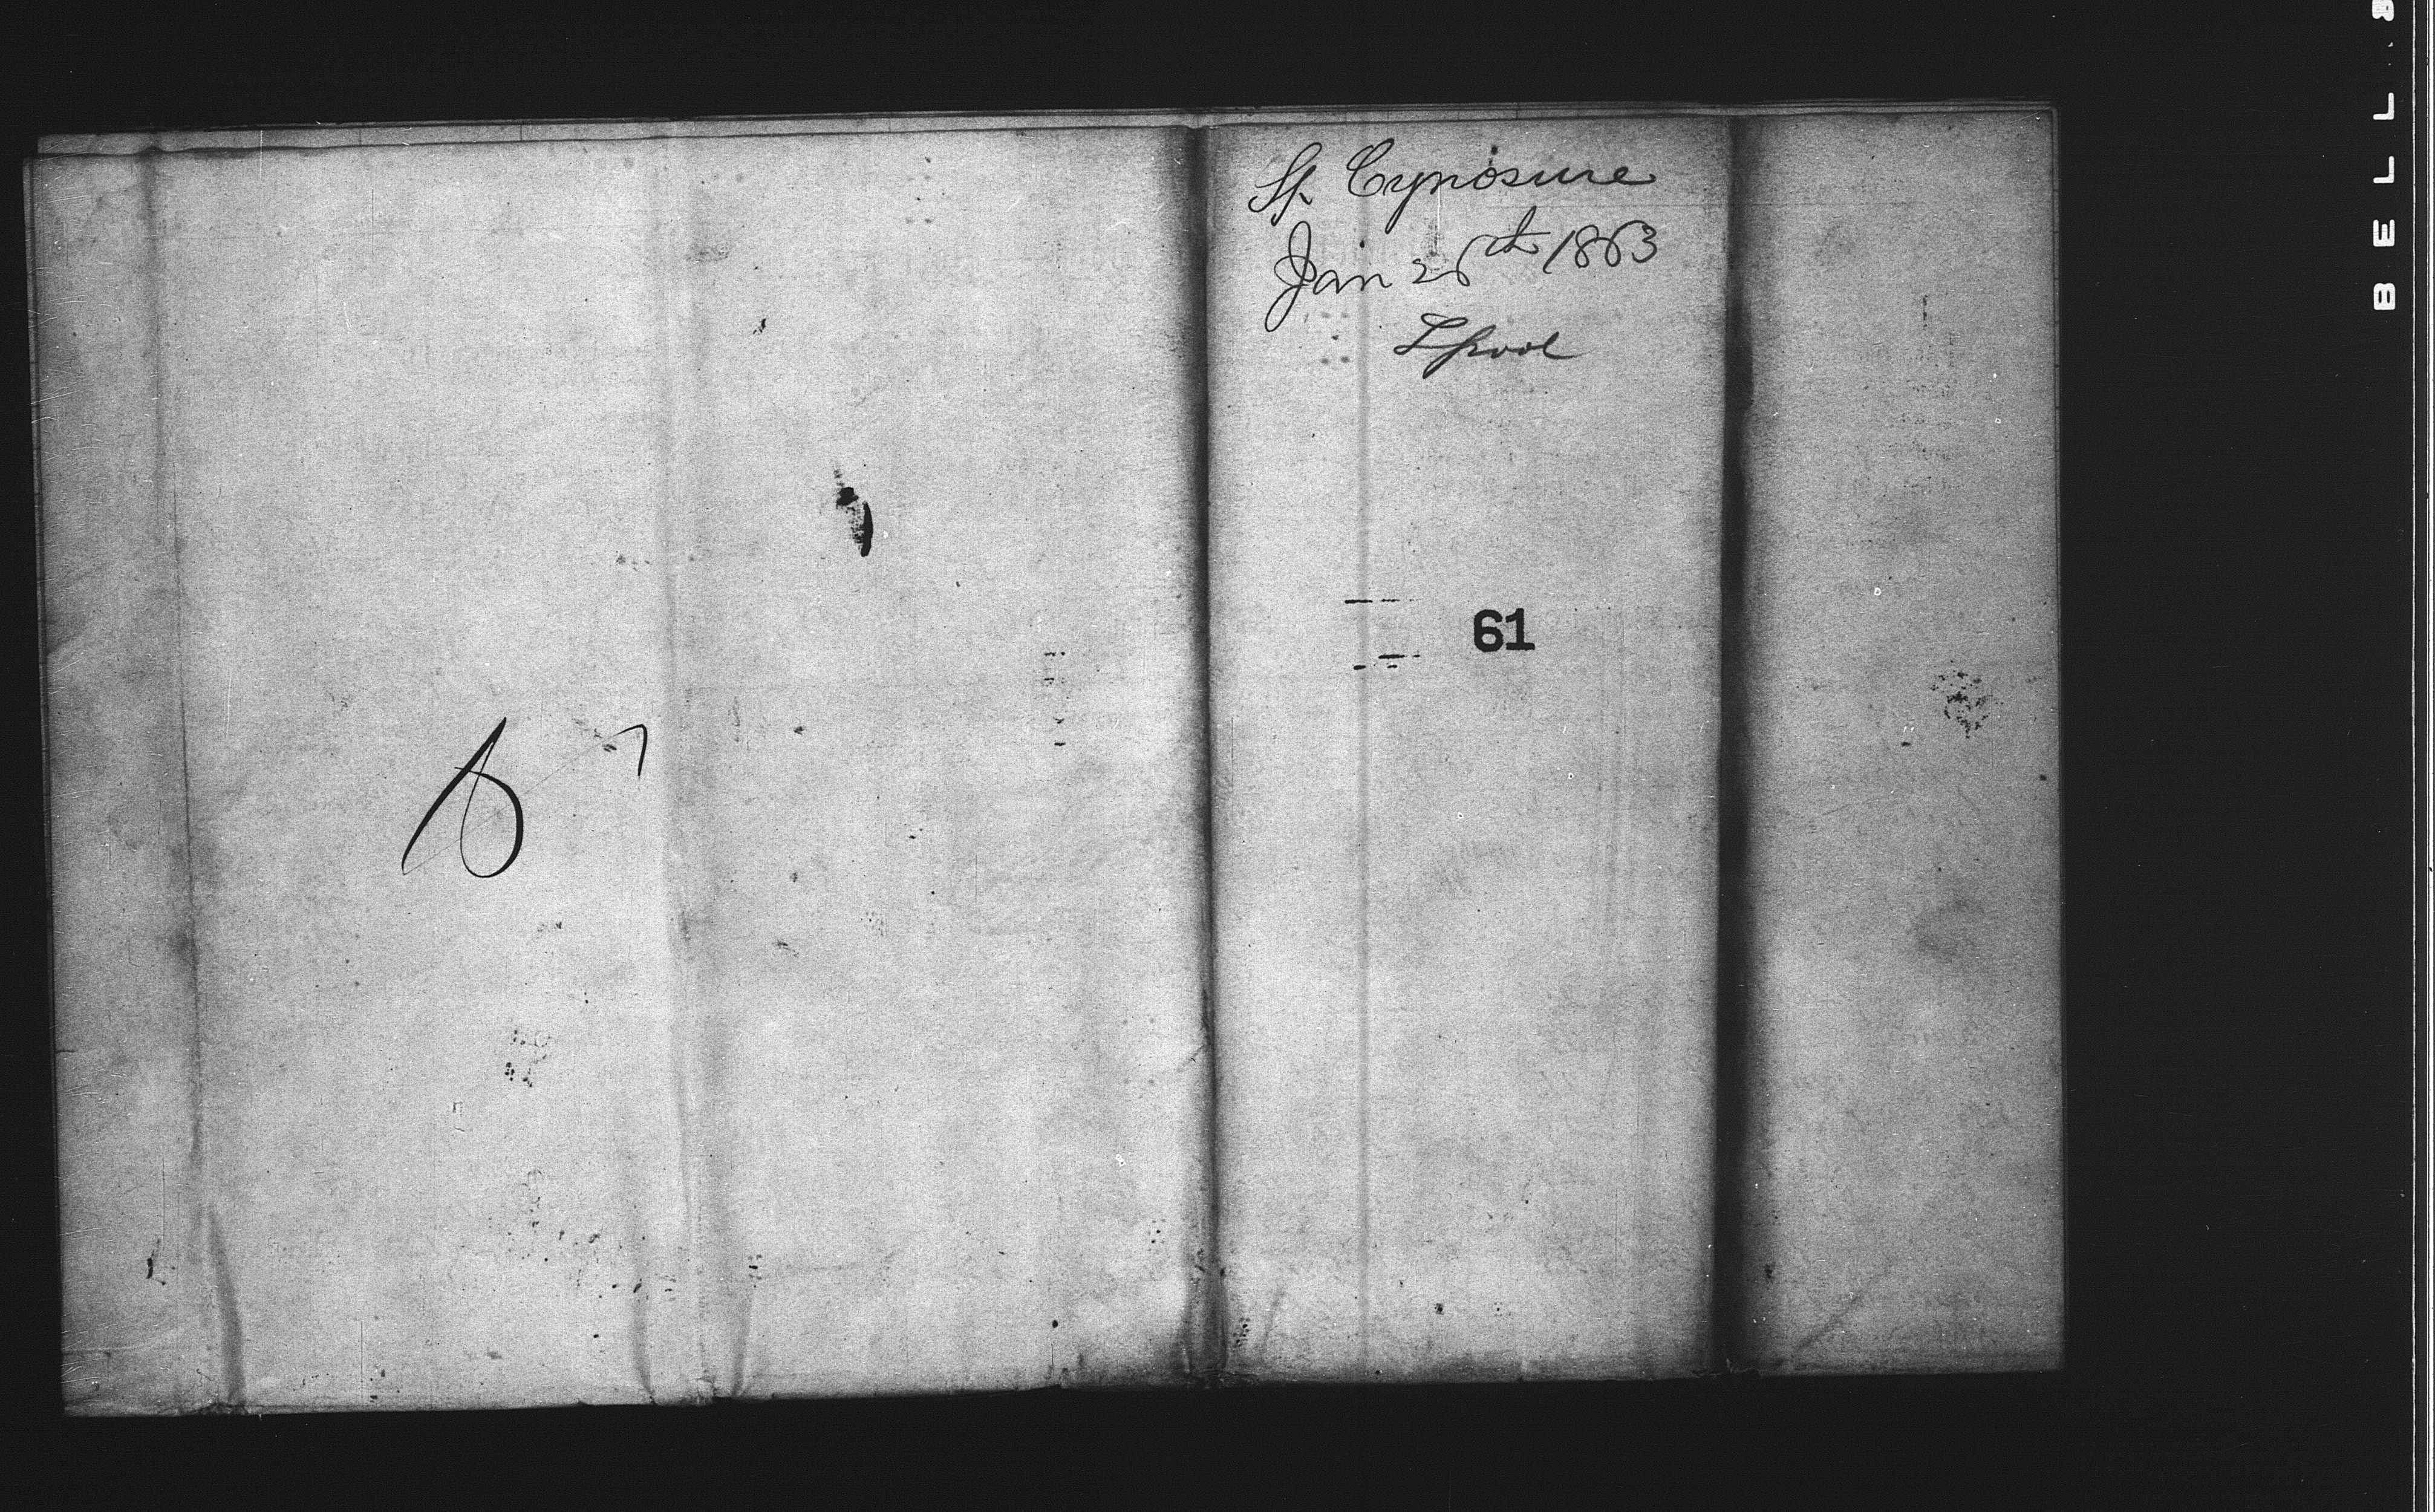 Sh Cynosure
Jan 26th 1863
Lpool
61
BELL